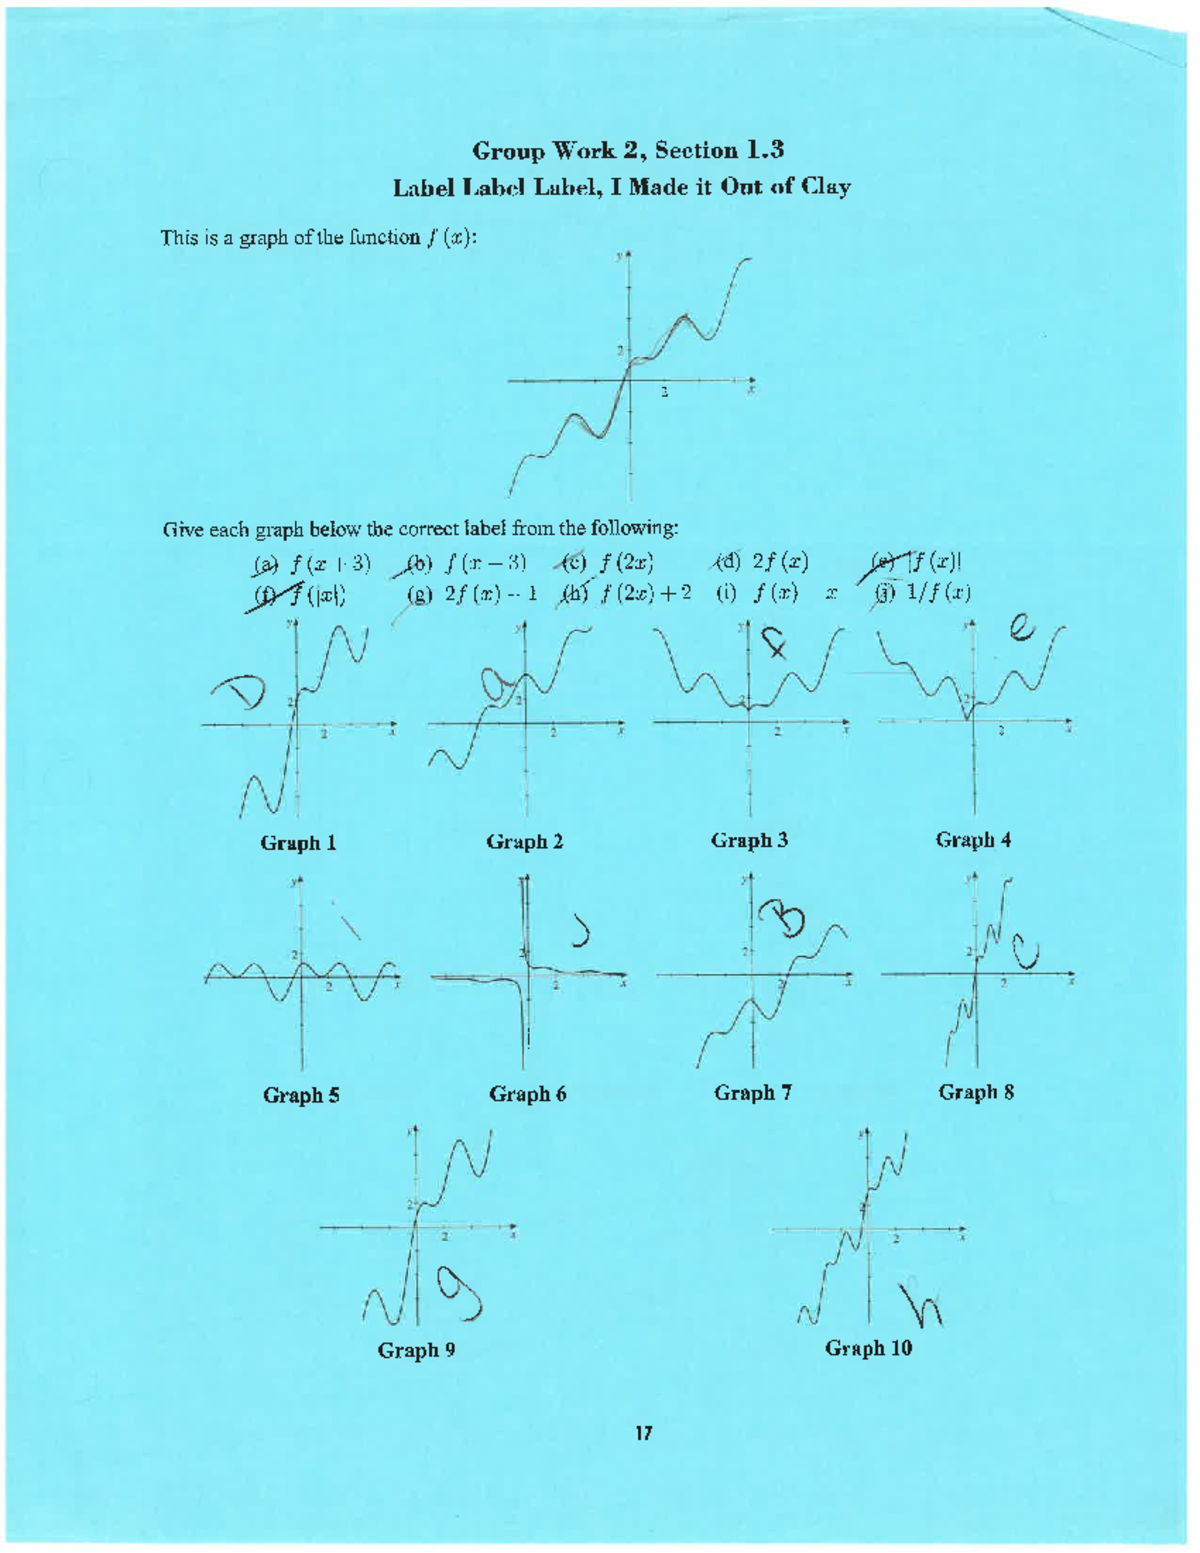 Group Work 2, Section 1.3
Label Label Label, I Made it Out of Clay
This is a graph of the function f (x):
y
2
2
x
Give each graph below the correct label from the following:
(a) f (x + 3) (b) f (x − 3) (c) f (2x) (d) 2f (x) (e) |f (x)|
(f) f (|x|) (g) 2f (x) − 1 (h) f (2x) + 2 (i) f (x) x (j) 1/f (x)
y y y y
D a f e
2 2 2 2
2 x 2 x 2 x 2 x
Graph 1 Graph 2 Graph 3 Graph 4
y y y y
J B C
2 2 2 2
2 x 2 x 2 x 2 x
Graph 5 Graph 6 Graph 7 Graph 8
y y
2 2
2 x 2 x
g h
Graph 9 Graph 10
17